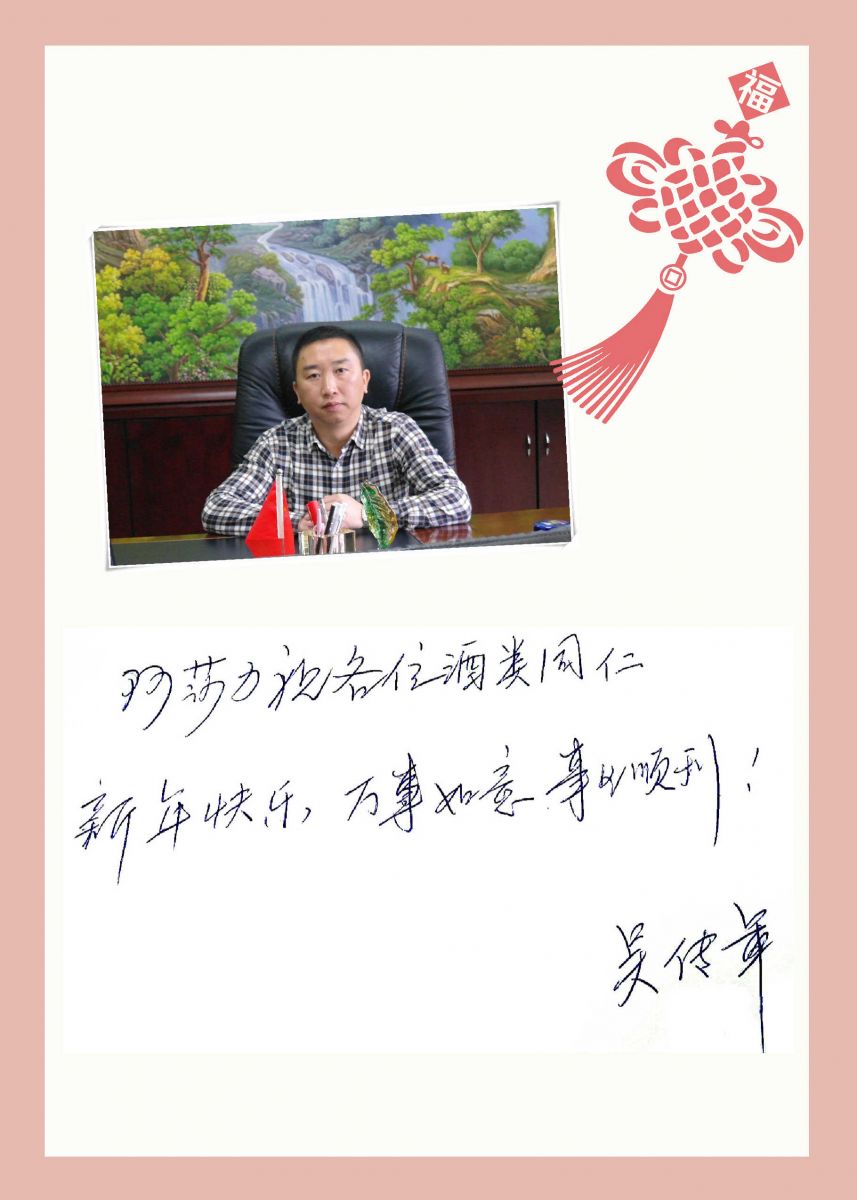 福
阿莎力祝各位酒类同仁
新年快乐，万事如意 事业顺利！
吴传军